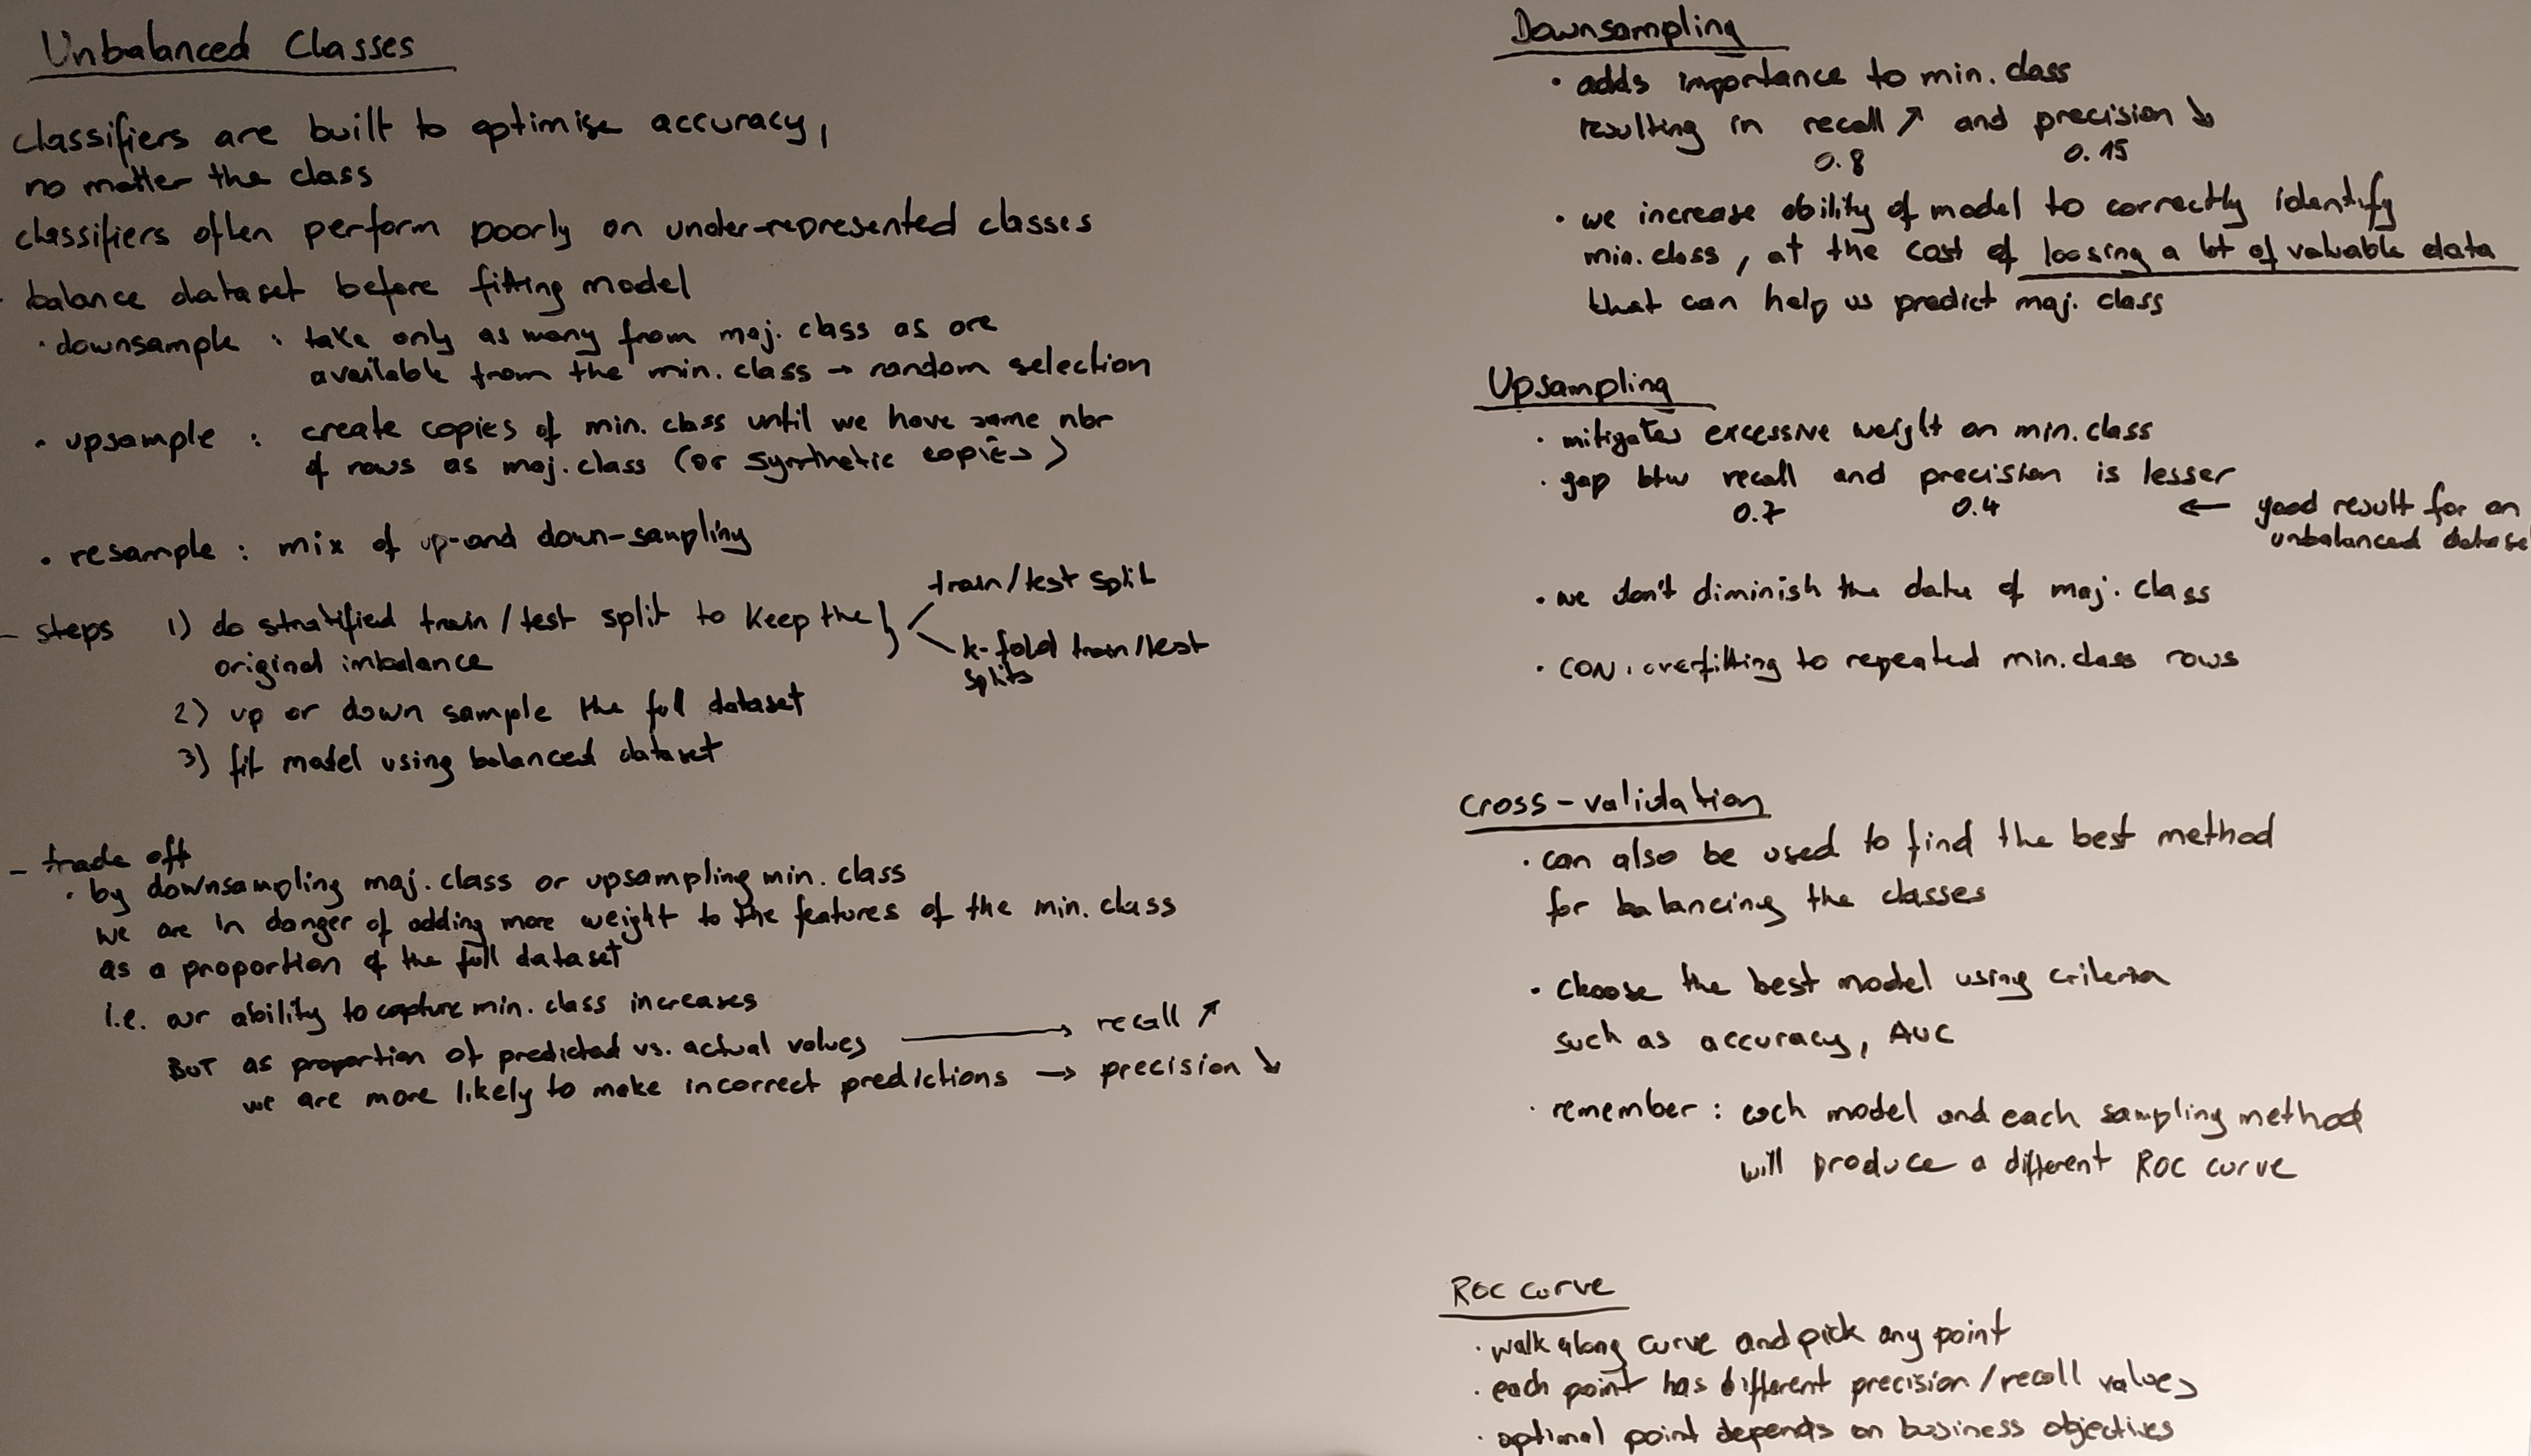 Unbalanced Classes
classifiers are built to optimise accuracy,
no matter the class
classifiers often perform poorly on under-represented classes
balance dataset before fitting model
· downsample : take only as many from maj. class as are
available from the min. class → random selection
· upsample : create copies of min. class until we have same nbr
of rows as maj. class (or synthetic copies)
· resample : mix of up-and down-sampling
- steps 1) do stratified train/test split to keep the
original imbalance
train/test split
k-fold train/test
splits
2) up or down sample the full dataset
3) fit model using balanced dataset
- trade off
· by downsampling maj. class or upsampling min. class
we are in danger of adding more weight to the features of the min. class
as a proportion of the full dataset
i.e. our ability to capture min. class increases
BUT as proportion of predicted vs. actual values → recall ↗
we are more likely to make incorrect predictions → precision ↘
Downsampling
· adds importance to min. class
resulting in recall ↗ and precision ↘
0.8 0.15
· we increase ability of model to correctly identify
min. class, at the cost of loosing a lot of valuable data
that can help us predict maj. class
Upsampling
· mitigates excessive weight on min. class
· gap btw recall and precision is lesser
0.7 0.4 ← good result for an
unbalanced datase
· we don't diminish the data of maj. class
· CON: overfitting to repeated min. class rows
Cross-validation
· can also be used to find the best method
for balancing the classes
· choose the best model using criteria
such as accuracy, AUC
· remember : each model and each sampling method
will produce a different ROC curve
ROC curve
· walk along curve and pick any point
· each point has different precision/recall values
· optimal point depends on business objectives